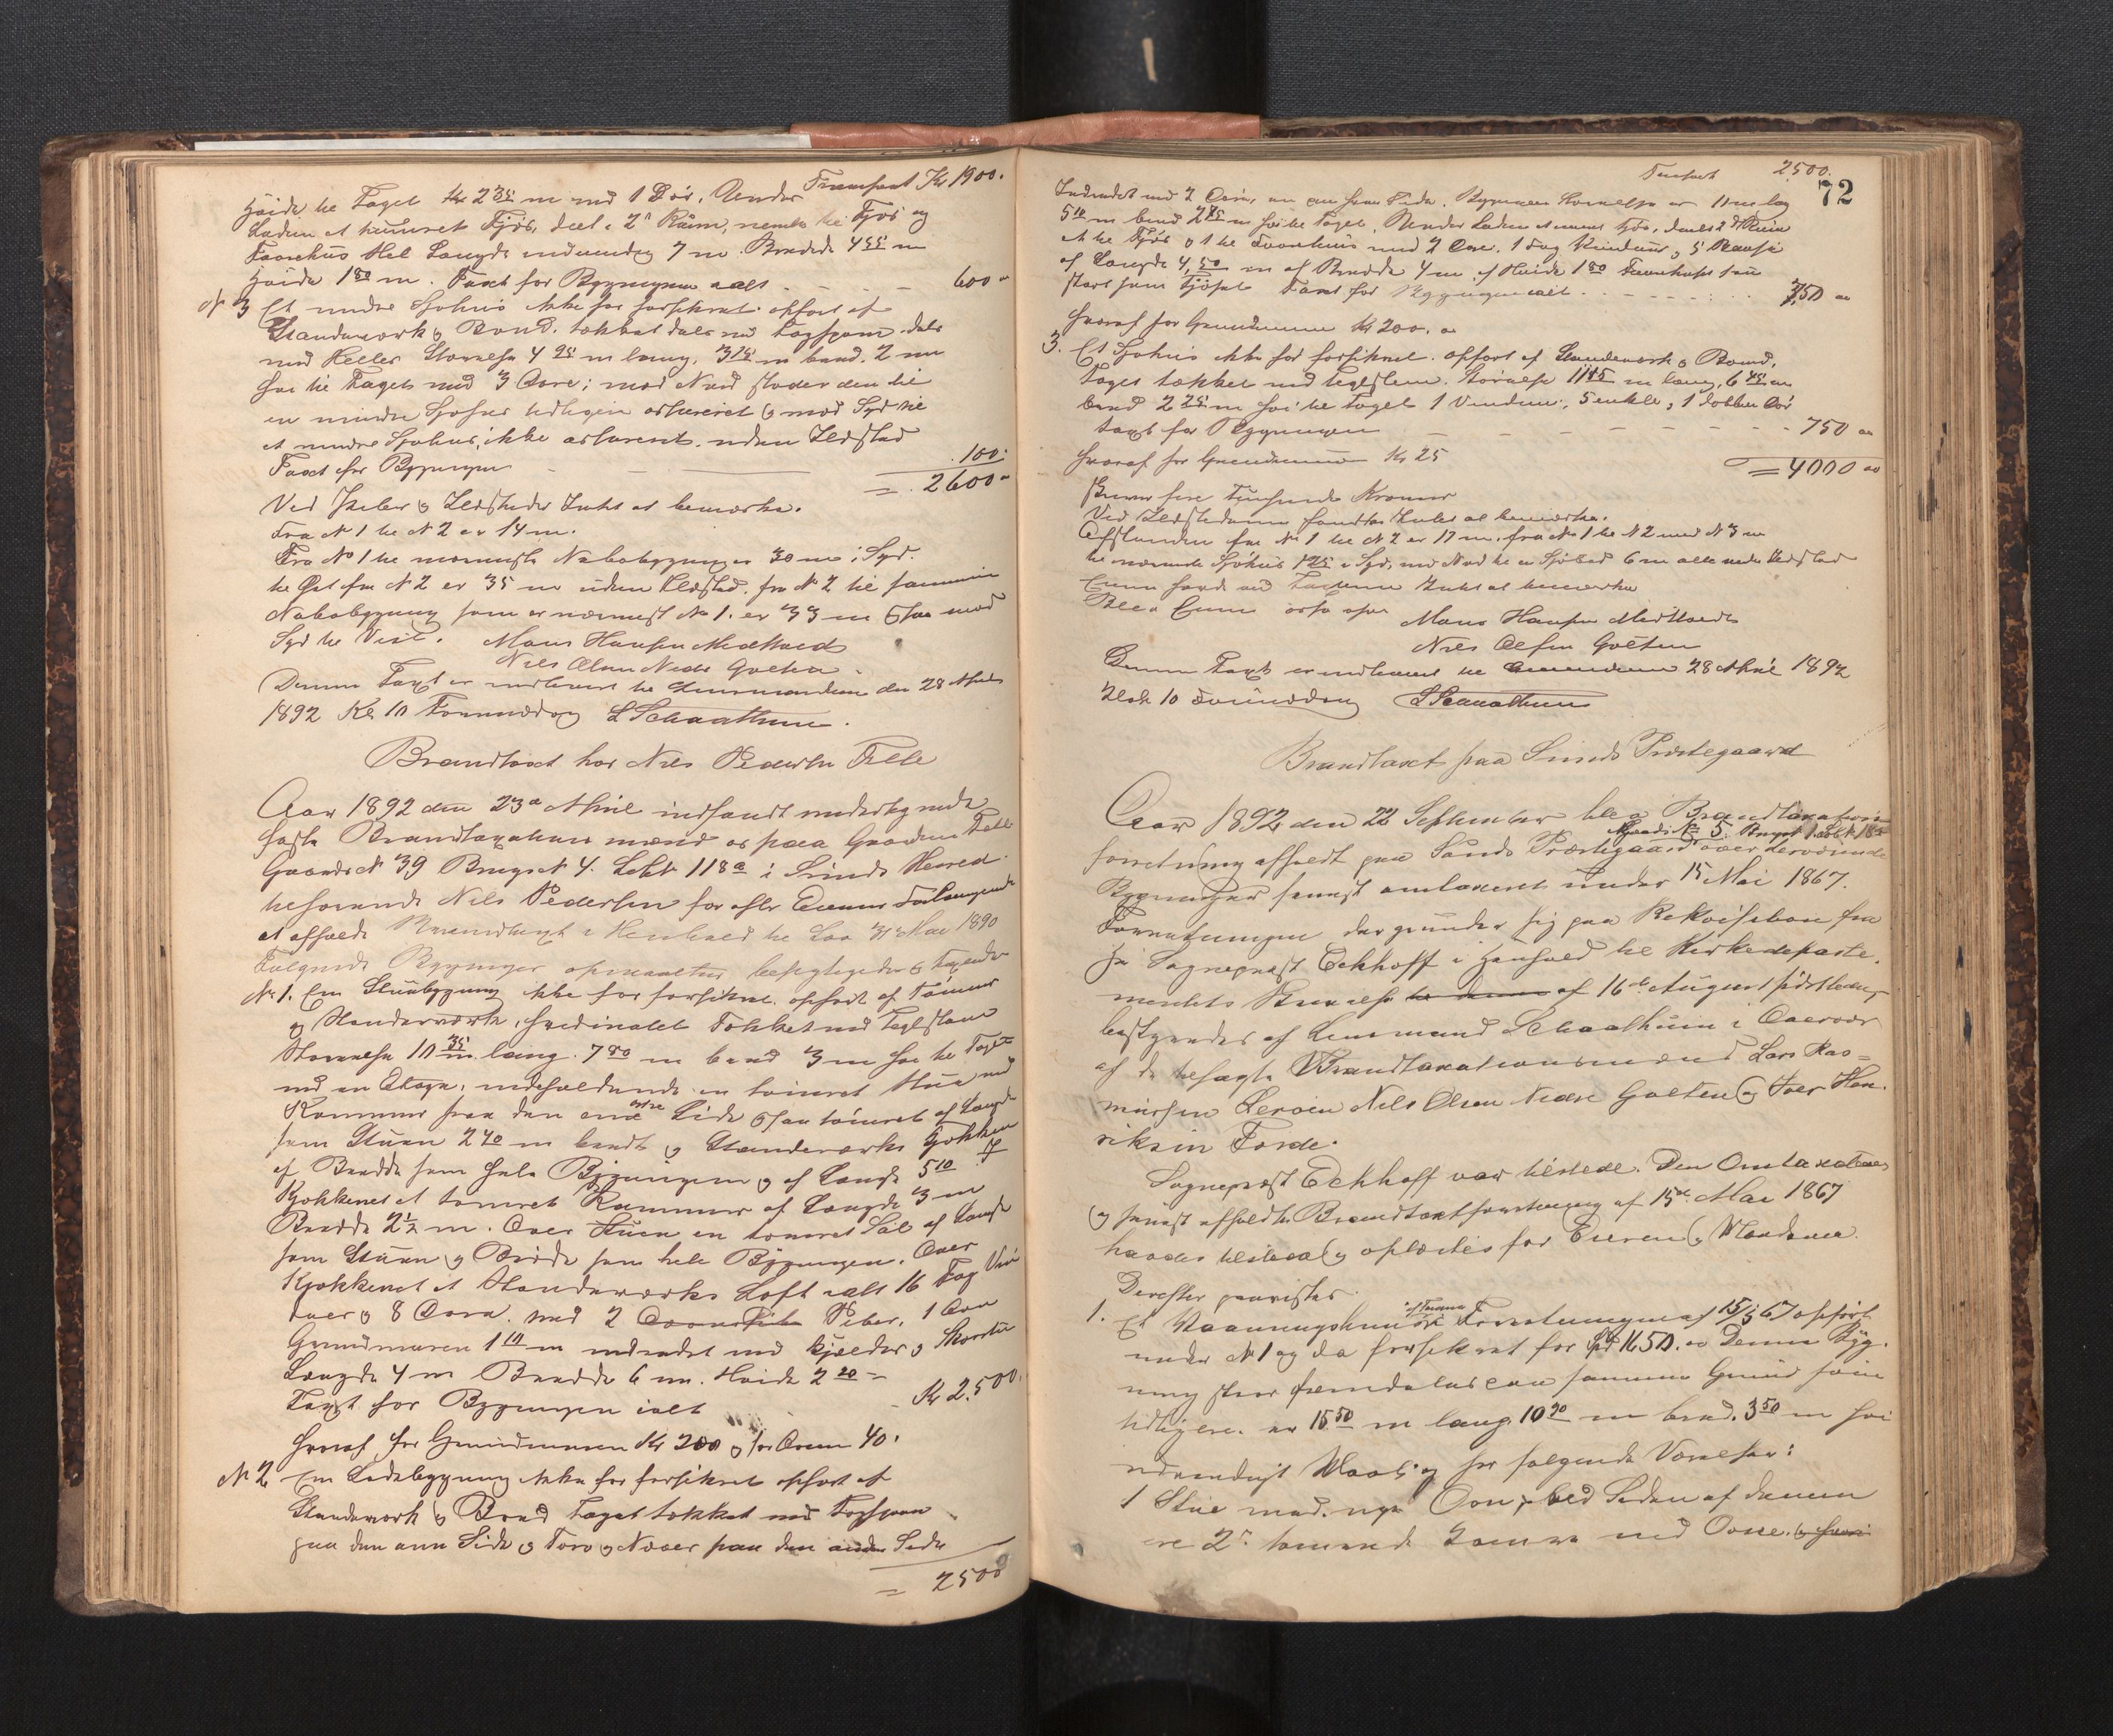 Transport Kr 1900.
Høide til Taget 2 35 m med 1 Dør. Under
Laden et tømret Fjøs, deelt i 2 Rum, nemlig til Fjøs og
Faarehus Hel Længde indvendig 7 m. Bredde 4 55 m
Høide 1 80 m. Taxt for Bygningen ialt - - - 600 "
N 3 Et mindre Sjøhus ikke før forsikret. opført af
Standerværk & Bord. tækket dels med Tagspaan dels
med Heller Størrelse 4 95 m lang, 3 75 m bred. 2 m
høi til Taget med 3 Døre; mod Nord støder den til
en mindre Sjøhus tidligere assureret & mod Syd til
et mindre Sjøhus, ikke assureret. uden Ildsted
Taxt for Bygningen - - 100.
= 2600 "
Ved Piber & Ildsteder Intet at bemærke.
Fra N 1 til N 2 er 14 m.
Fra No 1 til nærmeste Nabobygning er 30 m i Syd.
til Øst fra N 2 er 35 m uden Ildsted. fra N 2 til samme
Nabobygning som er nærmest No 1. er 33 m ogsaa mod
Syd til Vest. Mons Hansen Midttveid
Nils Olsen Nedre Golten
Denne Taxt er indleveret til Lensmanden den 28 April
1892 Kl 10 Formiddag L Schaathun.
Brandtaxt hos Nils Pedersen Telle
Aar 1892 den 23de April indfandt undertegnede
faste Brandtaxationsmænd os paa Gaarden Telle
Gaards N 39 Brugs N 4. Løbe N 118a i Sunds Herred
tilhørende Nils Pedersen for efter Eierens Forlangende
at afholde Brandtaxt i Henhold til Lov 31 Mai 1890
Følgende Bygninger opmaaltes besigtigedes & Taxeredes
No 1. En Stuebygning ikke før forsikret. opført af Tømmer
og Standerværk, hvidmalet Tækket med Teglstene
Størrelse 10 35 m lang. 7 80 m bred 3 m høi til Taget
med en Etage, indeholdende en tømret Stue med
Kammer paa den ene østre Side ogsaa tømret af Længde
som Stuen 2 40 m bredt & Standerværks Kjøkken
af Bredde som hele Bygningen & af Længde 5 10.
Kjøkkenet et tømret Kammer af Længde 3 m
Bredde 2 1/2 m. Over Stuen en tømret Sal af Længde
som Stuen & Bredde som hele Bygningen. Over
Kjøkkenet et Standerværks Loft ialt 16 Fag Vin
duer & 8 Døre. med 2 Piber, 1 Ovn
Grundmuren 1 10 m indredet med Kjælder & Skorsten
Længde 4 m Bredde 6 m. Høide 2 20
Taxt for Bygningen ialt - Kr 2500.
hvoraf for Grundmuren Kr 200 & for Ovnen 40.
N 2 En Ladebygning ikke før forsikret opført af
Standerværk & Bord Taget tækket med Tagspaan
paa den ene Side & Torv & Næver paa den anden Side
= 2500
Transport 2500.
72
Indredet med 2 Døre, en paa hver Side. Bygningens Størrelse er 11 m lang
5 10 m bred 2 75 m høi til Taget. Under Laden et tømret Fjøs, deelt i 2 Rum
et til Fjøs & 1 til Faarehus med 2 Døre. 1 Fag Vinduer & 5 Baase
af Længde 4,50 m af Bredde 4 m af Høide 1 80 Faarehuset saa
stort som Fjøset Taxt for Bygningen ialt - - - 750 "
hvoraf for Grundmuren Kr 200. "
3. Et Sjøhus ikke før forsikret. opført af Standerværk & Bord,
Taget tækket med Teglstene. Størrelse 11 85 m lang, 6 45 m
bred 2 25 m høi til Taget 1 Vindue, 5 enkle, 1 dobbel Dør
Taxt for Bygningen - - - 750 "
hvoraf for Grundmuren Kr 25
= 4000 "
skriver fire Tusinde Kroner
Ved Ildstederne fandtes Intet at bemærke.
Afstanden fra No 1 til N 2 er 17 m, fra No 1 til N 2 med N 3 m
til nærmeste Sjøhus 1 25 i Syd, mod Nord til en Sjøbod 6 m alle uden Ildsted
Eieren havde ved Taxten Intet at bemærke
Mons Hansen Midttveit
Nils Olsen Golten
Denne Taxt er indleveret til Lensmanden 28 April 1892
Klok 10 Formiddag L Schaathun
Brandtaxt paa Sunds Præstegaard
Aar 1892 den 22 September blev Brandtaxations
Gaards No 5. Brugs N 1. Løbe N 182
forretning afholdt paa Sunds Præstegaard over derværende
Bygninger senest omtaxeret under 15 Mai 1867.
Forretningen der grunder sig paa Rekvisition fra
Hr Sognepræst Eckhoff i Henhold til Kirkedeparte-
mentets Skrivelse af 16de August sidstleden,
bestyredes af Lensmand Schaathun i Overvær
af de befalede Brandtaxationsmænd Lars Ras=
mussen Lerøen Nils Olsen Nedre Golten & Iver Hen-
riksen Førde.
Sognepræst Eckhoff var tilstede. Den Omtaxations
og senest afholdte Brandtaxtforretning af 15de Mai 1867
havdes tilstede & oplæstes for Eieren & Mændene.
Derefter paavistes.
1. Et Vaaningshus af Tømmer i Forretningen af 15/5 67 opført
under N 1 og da forsikret for Spd 1650. " Denne Byg-
ning staar fremdeles paa samme Grund som
tidligere. er 15 50 m lang 10 90 m bred. 3 50 m høi
udvendigt Maal. og har følgende Værelser:
1 Stue med nye Ovn, ved Siden af denne
ere 2de tømrede Kamre med Ovne.